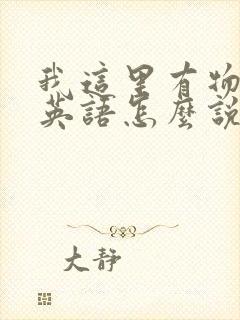 我這里有物
英語怎麼說
大靜